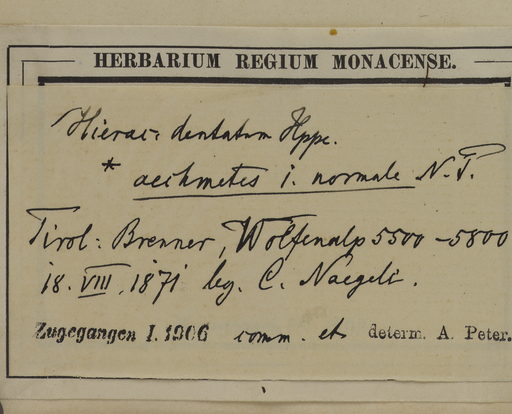 HERBARIUM REGIUM MONACENSE.
Hierac: dentatum Hppe.
* aechmetes 1. normale N. P.
Tirol: Brenner, Wolfenalp 5500 – 5800
18. VIII. 1871 leg. C. Naegeli.
Zugegangen I. 1906 comm. et determ. A. Peter.